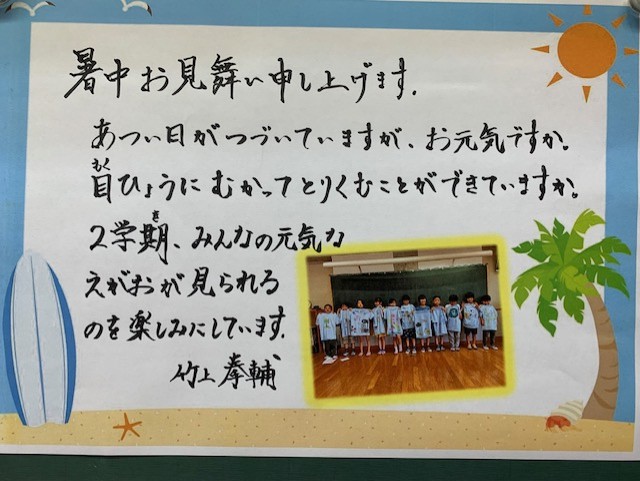 暑中お見舞い申し上げます。
あつい日がつづいていますが、お元気ですか。
目ひょうにむかってとりくむことができていますか。
2学期、みんなの元気な
えがおが見られる
のを楽しみにしています。
竹上 拳輔